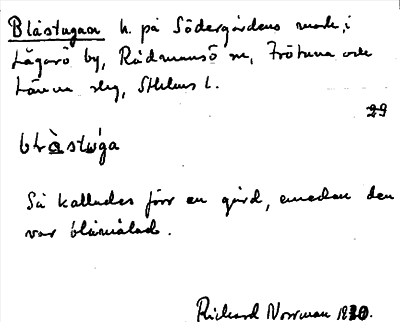 Blåstugan h. på Södergårdens mark, i
Lågarö by, Rådmansö sn, Frötuna och
Länna slg, Sthlms l.
29
blå̀stu̇́ga
Så kallades förr en gård, emedan den
var blåmålad.
Richard Norrman